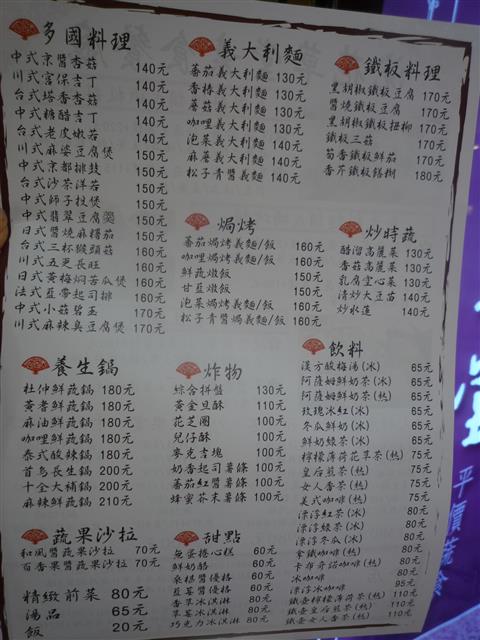 多國料理
中式京醬杏菇 140元
川式宮保吉丁 140元
台式塔香杏菇 140元
中式糖醋吉丁 140元
台式老皮嫩菇 140元
川式麻婆豆腐煲 150元
中式京都排鼓 150元
台式沙茶洋菇 150元
中式獅子技煲 150元
中式翡翠豆腐羹 150元
日式醬燒麻糬茄 150元
台式三杯猴頭菇 160元
川式五更長旺 160元
日式黃梅焖苦瓜煲 160元
法式藍帶起司排 160元
中式小菇碧玉 170元
川式麻辣臭豆腐煲 170元
義大利麵
蕃茄義大利麵 130元
香椿義大利麵 130元
蘑菇義大利麵 130元
咖哩義大利麵 130元
泡菜義大利麵 140元
麻薑義大利麵 140元
松子青醬義麵 140元
鐵板料理
黑胡椒鐵板豆腐 170元
醬燒鐵板豆腐 170元
黑胡椒鐵板扭柳 170元
鐵板三菇 170元
筍香鐵板鮮茄 170元
香芹鐵板鱔糊 180元
焗烤
蕃茄焗烤義麵/飯 160元
咖哩焗烤義麵/飯 160元
鮮蔬燉飯 150元
甘荳燉飯 150元
泡菜焗烤義麵/飯 160元
松子青醬焗義麵/飯 160元
炒時蔬
醋溜高麗菜 130元
香菇高麗菜 130元
乳腐空心菜 130元
清炒大豆苗 140元
炒水蓮 140元
養生鍋
杜仲鮮蔬鍋 180元
黃耆鮮蔬鍋 180元
麻油鮮蔬鍋 180元
咖哩鮮蔬鍋 180元
泰式酸辣鍋 180元
首烏長生鍋 200元
十全大補鍋 200元
麻辣鮮蔬鍋 210元
炸物
綜合拼盤 130元
黃金豆酥 110元
花芝圈 100元
兒仔酥 100元
麥克吉塊 100元
奶香起司薯條 100元
蕃茄紅醬薯條 100元
蜂蜜芥末薯條 100元
飲料
漢方酸梅湯(冰) 65元
阿薩姆鮮奶茶(冰) 65元
阿薩姆鮮奶茶(熱) 75元
玫瑰冰紅(冰) 65元
冬瓜鮮奶(冰) 65元
鮮奶綠茶(冰) 65元
檸檬薄荷花草茶(熱) 75元
皇后煎茶(熱) 75元
女人香茶(熱) 75元
美式咖啡(熱) 75元
漂浮紅茶(冰) 80元
漂浮綠茶(冰) 80元
漂浮冬瓜(冰) 80元
拿鐵咖啡(熱) 80元
卡布奇諾咖啡(熱) 80元
冰咖啡 80元
漂浮冰咖啡 95元
鐵壺檸檬薄荷茶(熱) 110元
鐵壺皇后煎茶(熱) 110元
鐵壺女人香茶(熱) 110元
蔬果沙拉
和風醬蔬果沙拉 70元
百香果醬蔬果沙拉 70元
精緻前菜 80元
湯品 65元
飯 20元
甜點
無蛋捲心糕 60元
鮮奶酪 60元
桑椹醬優格 60元
藍莓醬優格 60元
香草冰淇淋 80元
草莓冰淇淋 80元
巧克力冰淇淋 80元
平價蔬食